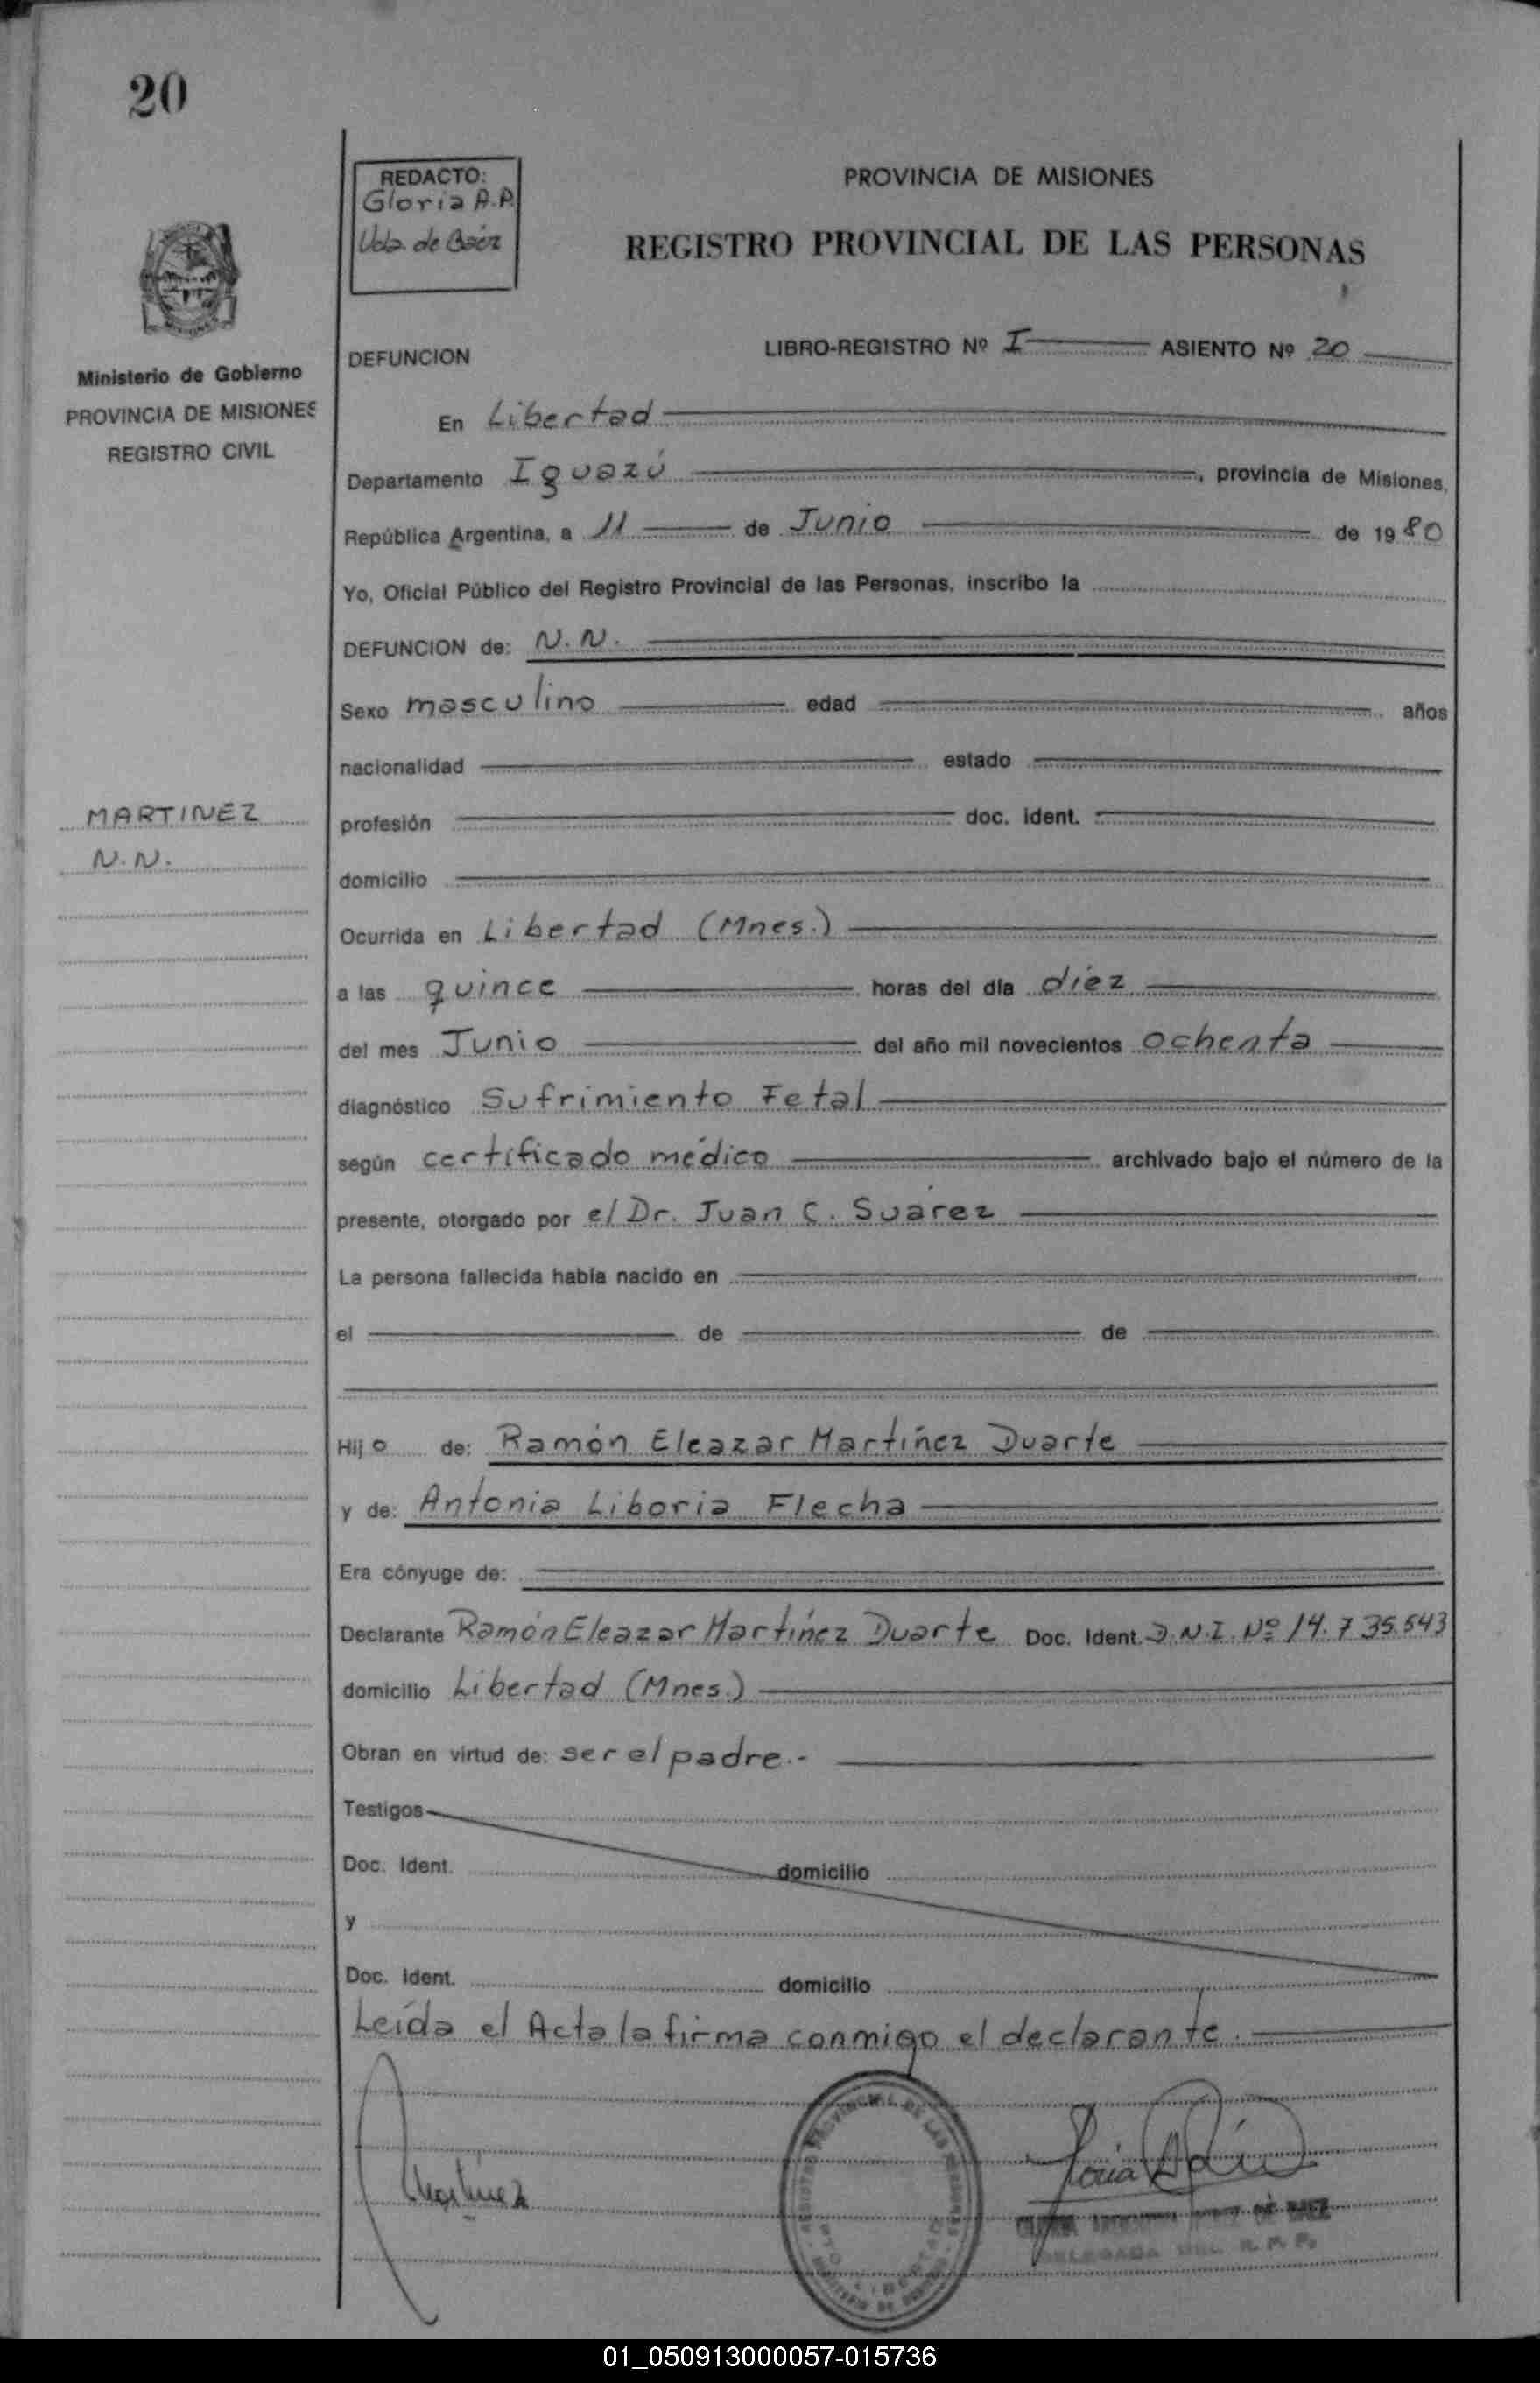 20
REDACTO:
Gloria A.A.
Vda. de Báez
PROVINCIA DE MISIONES
REGISTRO PROVINCIAL DE LAS PERSONAS
Ministerio de Gobierno
PROVINCIA DE MISIONES
REGISTRO CIVIL
DEFUNCION LIBRO-REGISTRO Nº I ASIENTO Nº 20
En Libertad
Departamento Iguazú, provincia de Misiones,
República Argentina, a 11 de Junio de 1980
Yo, Oficial Público del Registro Provincial de las Personas, inscribo la
DEFUNCION de: N.N.
Sexo masculino edad años
nacionalidad estado
MARTINEZ
N.N.
profesión doc. ident.
domicilio
Ocurrida en Libertad (Mnes.)
a las quince horas del día diez
del mes Junio del año mil novecientos ochenta
diagnóstico Sufrimiento Fetal
según certificado médico archivado bajo el número de la
presente, otorgado por el Dr. Juan C. Suárez
La persona fallecida había nacido en
el de de
Hijo de: Ramón Eleazar Martínez Duarte
y de: Antonia Liboria Flecha
Era cónyuge de:
Declarante Ramón Eleazar Martínez Duarte Doc. Ident. D.N.I. Nº 14.735.543
domicilio Libertad (Mnes.)
Obran en virtud de: ser el padre.-
Testigos
Doc. Ident. domicilio
y
Doc. Ident. domicilio
Leída el Acta la firma conmigo el declarante.
Martinez
REGISTRO PROVINCIAL DE LAS PERSONAS
DELEGADA DEL R. P. P.
01_050913000057-015736